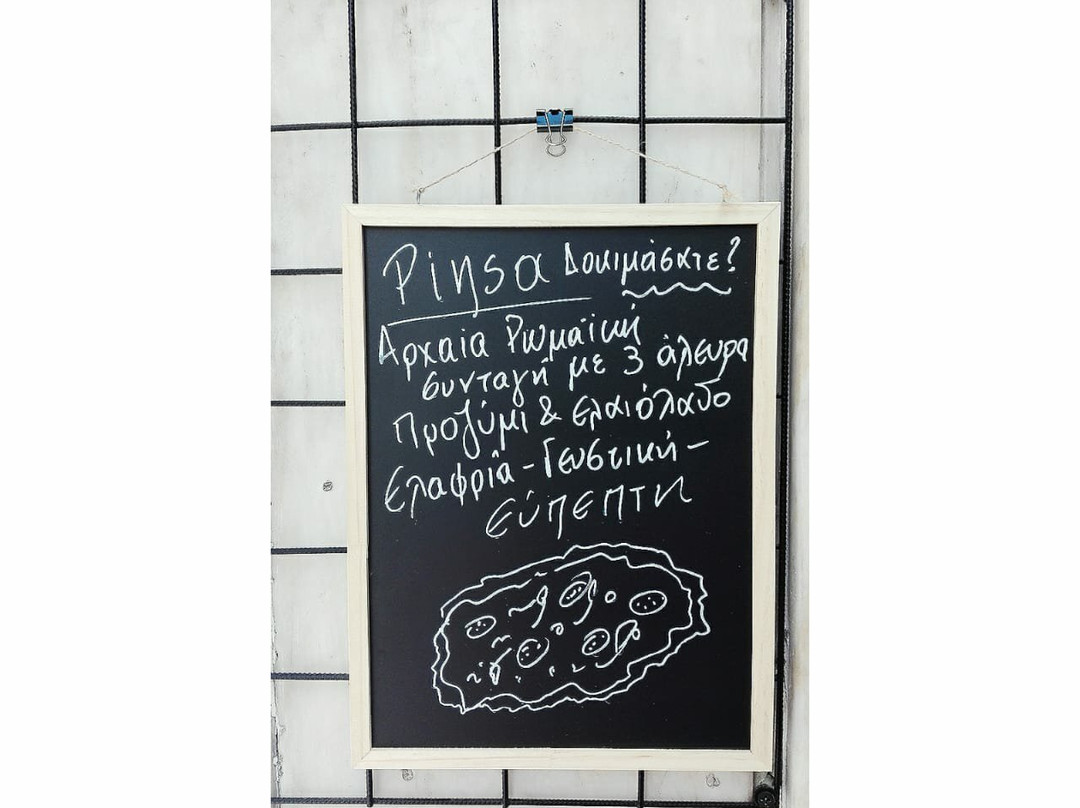 Pinsa Δοκιμάσατε?
Αρχαία Ρωμαϊκή
συνταγή με 3 άλευρα
Προζύμι & ελαιόλαδο
Ελαφριά - Γευστική -
εύπεπτη